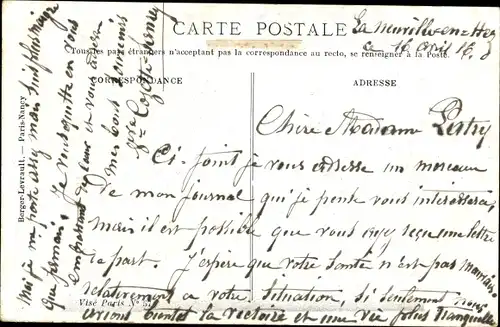 CARTE POSTALE
La Neuville-en-Hez
le 16 Avril 18
Tous les pays étrangers n'acceptent pas la correspondance au recto, se renseigner à la Poste.
CORRESPONDANCE
ADRESSE
Chère Madame
Ci-joint je vous adresse un morceau
de mon journal qui je pense vous intéressera,
mais il est possible que vous ayez reçu une lettre
de part. J'espère que votre santé n'est pas mauvaise
relativement à votre situation, si seulement nous
avions bientôt la victoire et une vie plus tranquille
Moi je me porte assez mais suis plus maigre
que jamais. Je vous quitte en vous
embrassant de cœur et vous
mes bons souvenirs
Berger-Levrault. — Paris-Nancy
Visé Paris N°